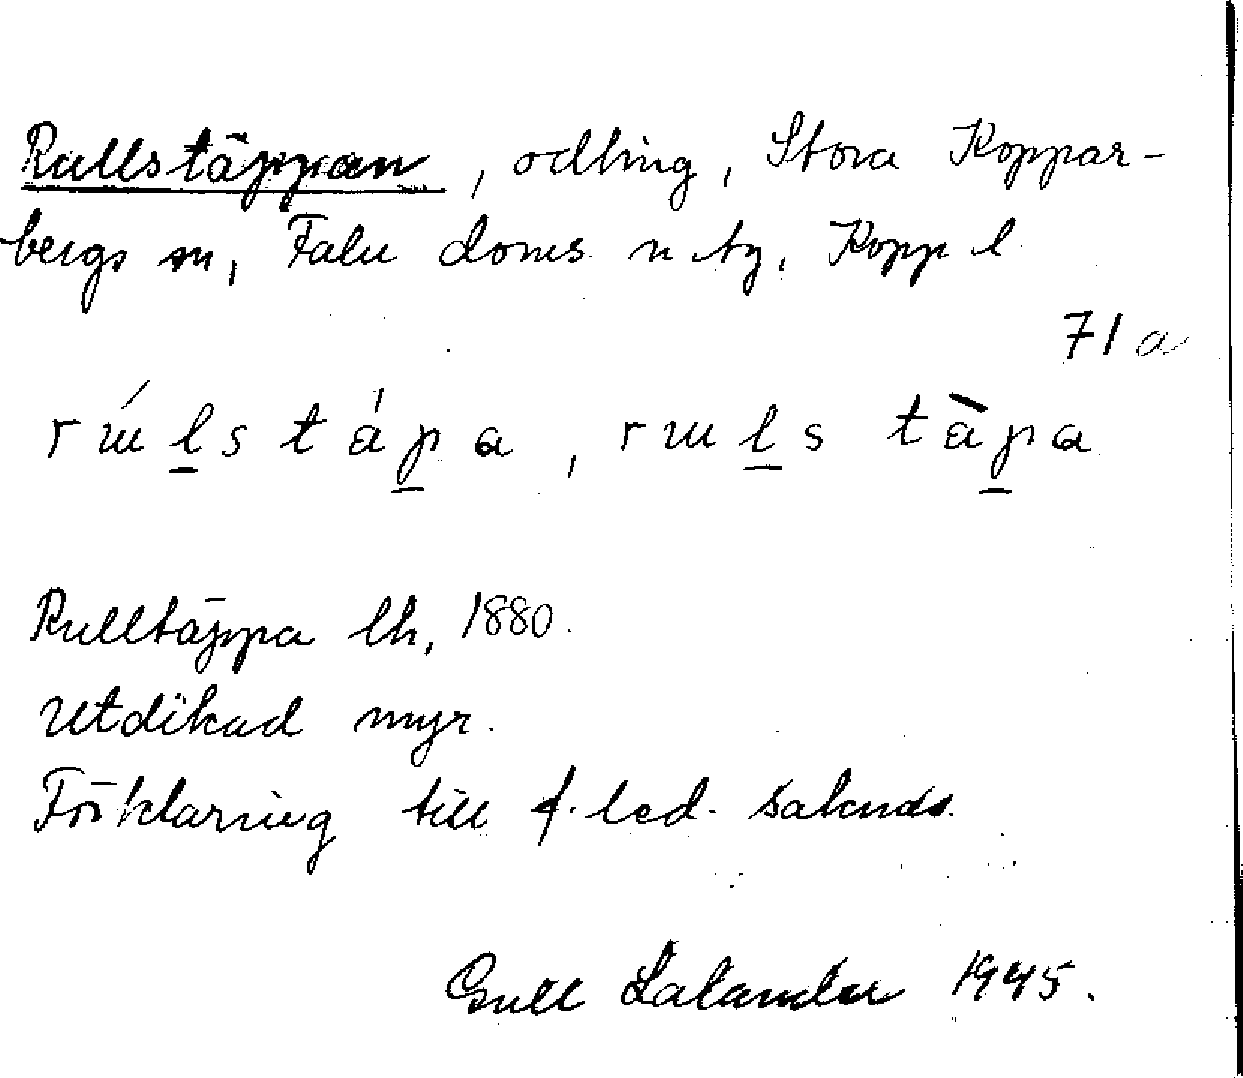 Rullstäppan, odling, Stora Koppar-
bergs sn, Falu doms. n tg, Kopp l
71 a
Rulltäppa lh, 1880.
Utdikad myr.
Förklaring till f. led. saknas.
Gull Lalander 1945.